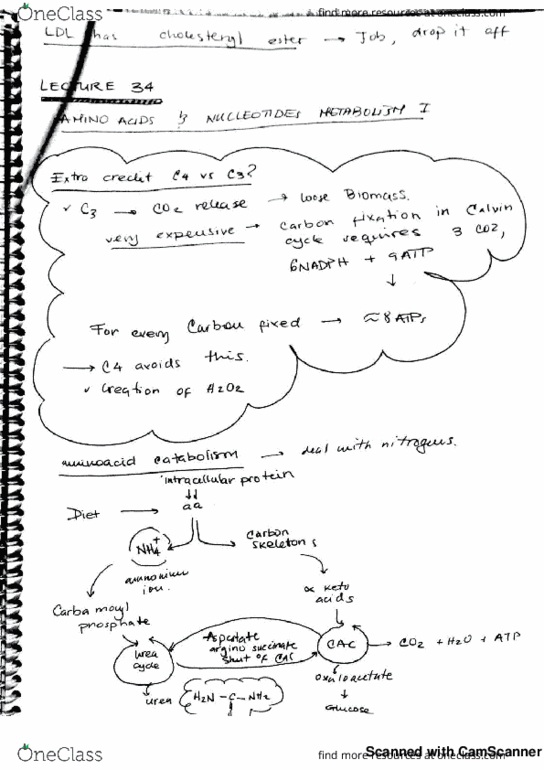 OneClass
find more resources at oneclass.com
LDL has cholesteryl ester → Job, drop it off
LECTURE 34
AMINO ACIDS & NUCLEOTIDES METABOLISM I
Extra credit C4 vs C3?
✓ C3 → CO2 release → loose Biomass.
very expensive → Carbon fixation in Calvin
cycle requires 3 CO2,
6NADPH + 9ATP
↓
For every Carbon fixed → ≈8ATPs
→ C4 avoids this.
✓ Creation of H2O2
aminoacid catabolism → deal with nitrogens.
intracellular protein
Diet → aa
NH4+
Carbon
skeletons
ammonium
ion.
α keto
acids
Carbamoyl
phosphate
urea
cycle
Aspertate
argino succinate
shut of CAC
CAC → CO2 + H2O + ATP
oxaloacetate
↓
Glucose
urea
H2N - C - NH2
OneClass
find more resources at oneclass.com
Scanned with CamScanner